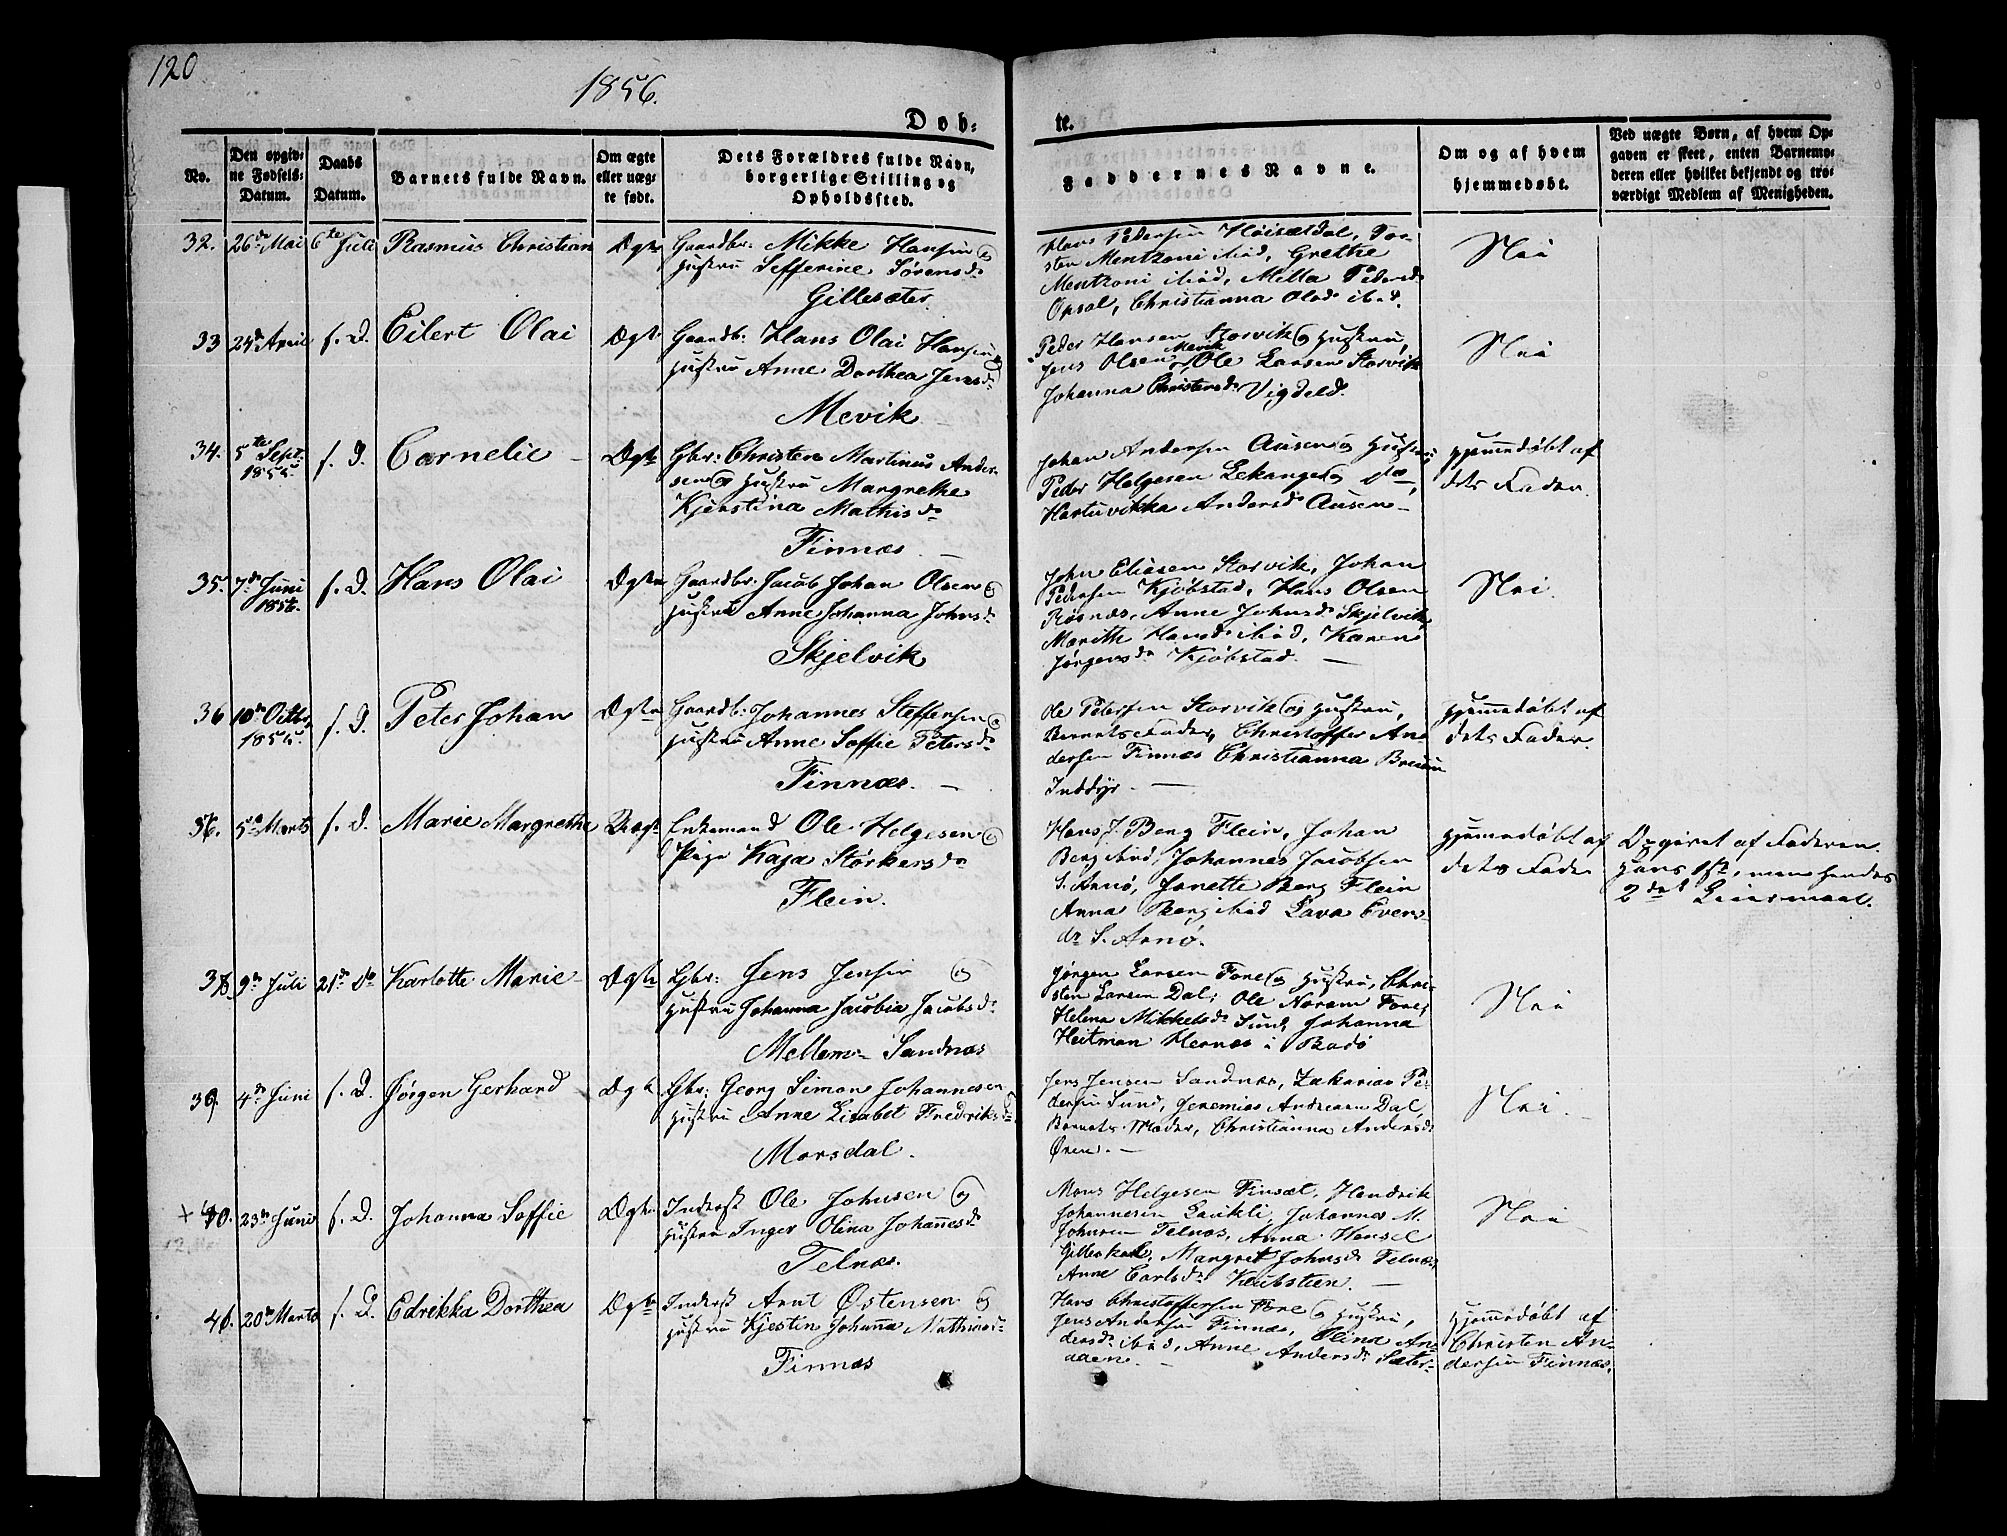 120
1856.
Døb-
te.
No.
Den opgiv-
ne Fødsels-
Datum.
Daabs
Datum.
Barnets fulde Navn.
Om ægte
eller uæg-
te født.
Dets Forældres fulde Navn,
borgerlige Stilling og
Opholdssted.
Faddernes Navne.
Om og af hvem
hjemmedøbt.
Ved uægte Børn, af hvem Op-
gaven er skeet, enten Barnemo-
deren eller hvilket bekjendt og tro-
værdigt Medlem af Menigheden.
32. 26de Mai 6te Juli Rasmus Christian Ægte
Gaardbr. Mikke Hansen og
Hustru Sefferine Sørensdr
Gillesæter.
Hans Pedersen Høisætdal, Tor-
sten Mentzoni ibid, Grethe
Mentzoni ibid, Mella Pedersdr
Opsal, Christianna Olsdr ibid.
Nei
33 24de April s. D. Eilert Olai Ægte
Gaardb. Hans Olai Hansen og
Hustru Anne Dorthea Jensdr
Mevik
Peder Hansen Storvik og Hustru,
Jens Olsen Mevik, Ole Larsen Storvik
Johanna Christensdr Vigdeld.
Nei
34. 5te Sept. 1855 s. D. Carnelie Ægte
Gbr: Christen Martinus Ander-
sen og Hustru Margrethe
Kjerstina Mathisdr
Finnæs.
Johan Andersen Ausen og Hustru,
Peder Helgesen Lekanger og do,
Hartuvikka Andersdr Ausen
Hjemmedøbt af
dets Fader.
35. 7de Juni 1856. s. D. Hans Olai Ægte
Gaardbr. Jacob Johan Olsen og
Hustru Anne Johanna Johnsdr
Skjelvik
John Eliasen Storvik, Johan
Pedersen Kjøbstad, Hans Olsen
Røsnæs, Anne Johnsdr Skjelvik,
Marith Hansdr ibid, Karen
Jørgensdr Kjøbstad.
Nei.
36 10de Octbr 1855. s. D. Peter Johan Ægte
Gaardb: Johannes Steffensen og
Hustru Anne Soffie Petersdr
Finnæs.
Ole Petersen Storvik og Hustru,
Barnets Fader, Christoffer An-
dersen Finnæs Christianna Bruun
Inddyr.
Hjemmedøbt af
dets Fader.
37. 5te Marts s. D. Marie Margrethe Uægte
Enkemand Ole Helgesen og
Pige Kaja Størkersdr
Flein.
Hans J. Berg Flein, Johan
Berg ibid, Johannes Jacobsen
S. Arnø, Janette Berg Flein
Anna Berg ibid Lava Evens-
dr S. Arnø.
Hjemmedøbt af
dets Fader
Opgivet af Faderen.
Hans 1ste, men hendes
2det Leiermaal.
38. 9de Juli 21de do Karlotte Marie Ægte
Gbr: Jens Jensen og
Hustru Johanna Jacobia Jacobsdr
Mellem Sandnæs
Jørgen Larsen Fore og Hustru, Chri-
sten Larsen Dal, Ole Noram Fore,
Helena Mikkelsdr Sund, Johanna
Heitman Hernæs i Bodø
Nei
39. 4de Juni s. D. Jørgen Gerhard Ægte
Gbr: Georg Simon Johannesen og
Hustru Anne Lisabet Frederiksdr
Morsdal.
Jens Jensen Sandnæs, Zakarias Pe-
dersen Sund, Jeremias Andresen Dal,
Barnets Moder, Christianna Andersdr
Øren.
Nei.
+ 40. 23de Juni s. D. Johanna Soffie Ægte
Inderst Ole Johnsen og
Hustru Inger Olina Johannesdr
Telnæs.
Mons Helgesen Finsæt, Hendrik
Johannesen Laukli, Johannes M.
Johnsen Telnæs, Anna Hensel
Gilleskaal, Margret Johnsdr Telnæs,
Anne Carlsdr
Nei
41. 20de Marts s. D. Edrikka Dorthea Ægte
Inderst Arnt Østensen og
Hustru Kjestin Johanna Mathiasdr
Finnæs
Hans Christoffersen Fore og Hustru,
Jens Andersen Finnæs, Elina An-
dersdr ibid, Anne Andersdr Sæter-
aaen.
Hjemmedøbt af
Christen An-
dersen Finnæs.